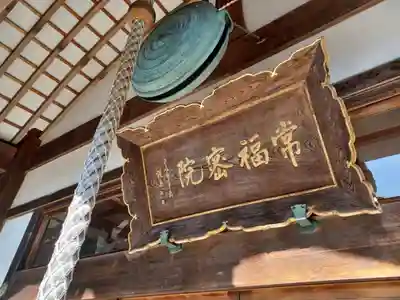 常福密院